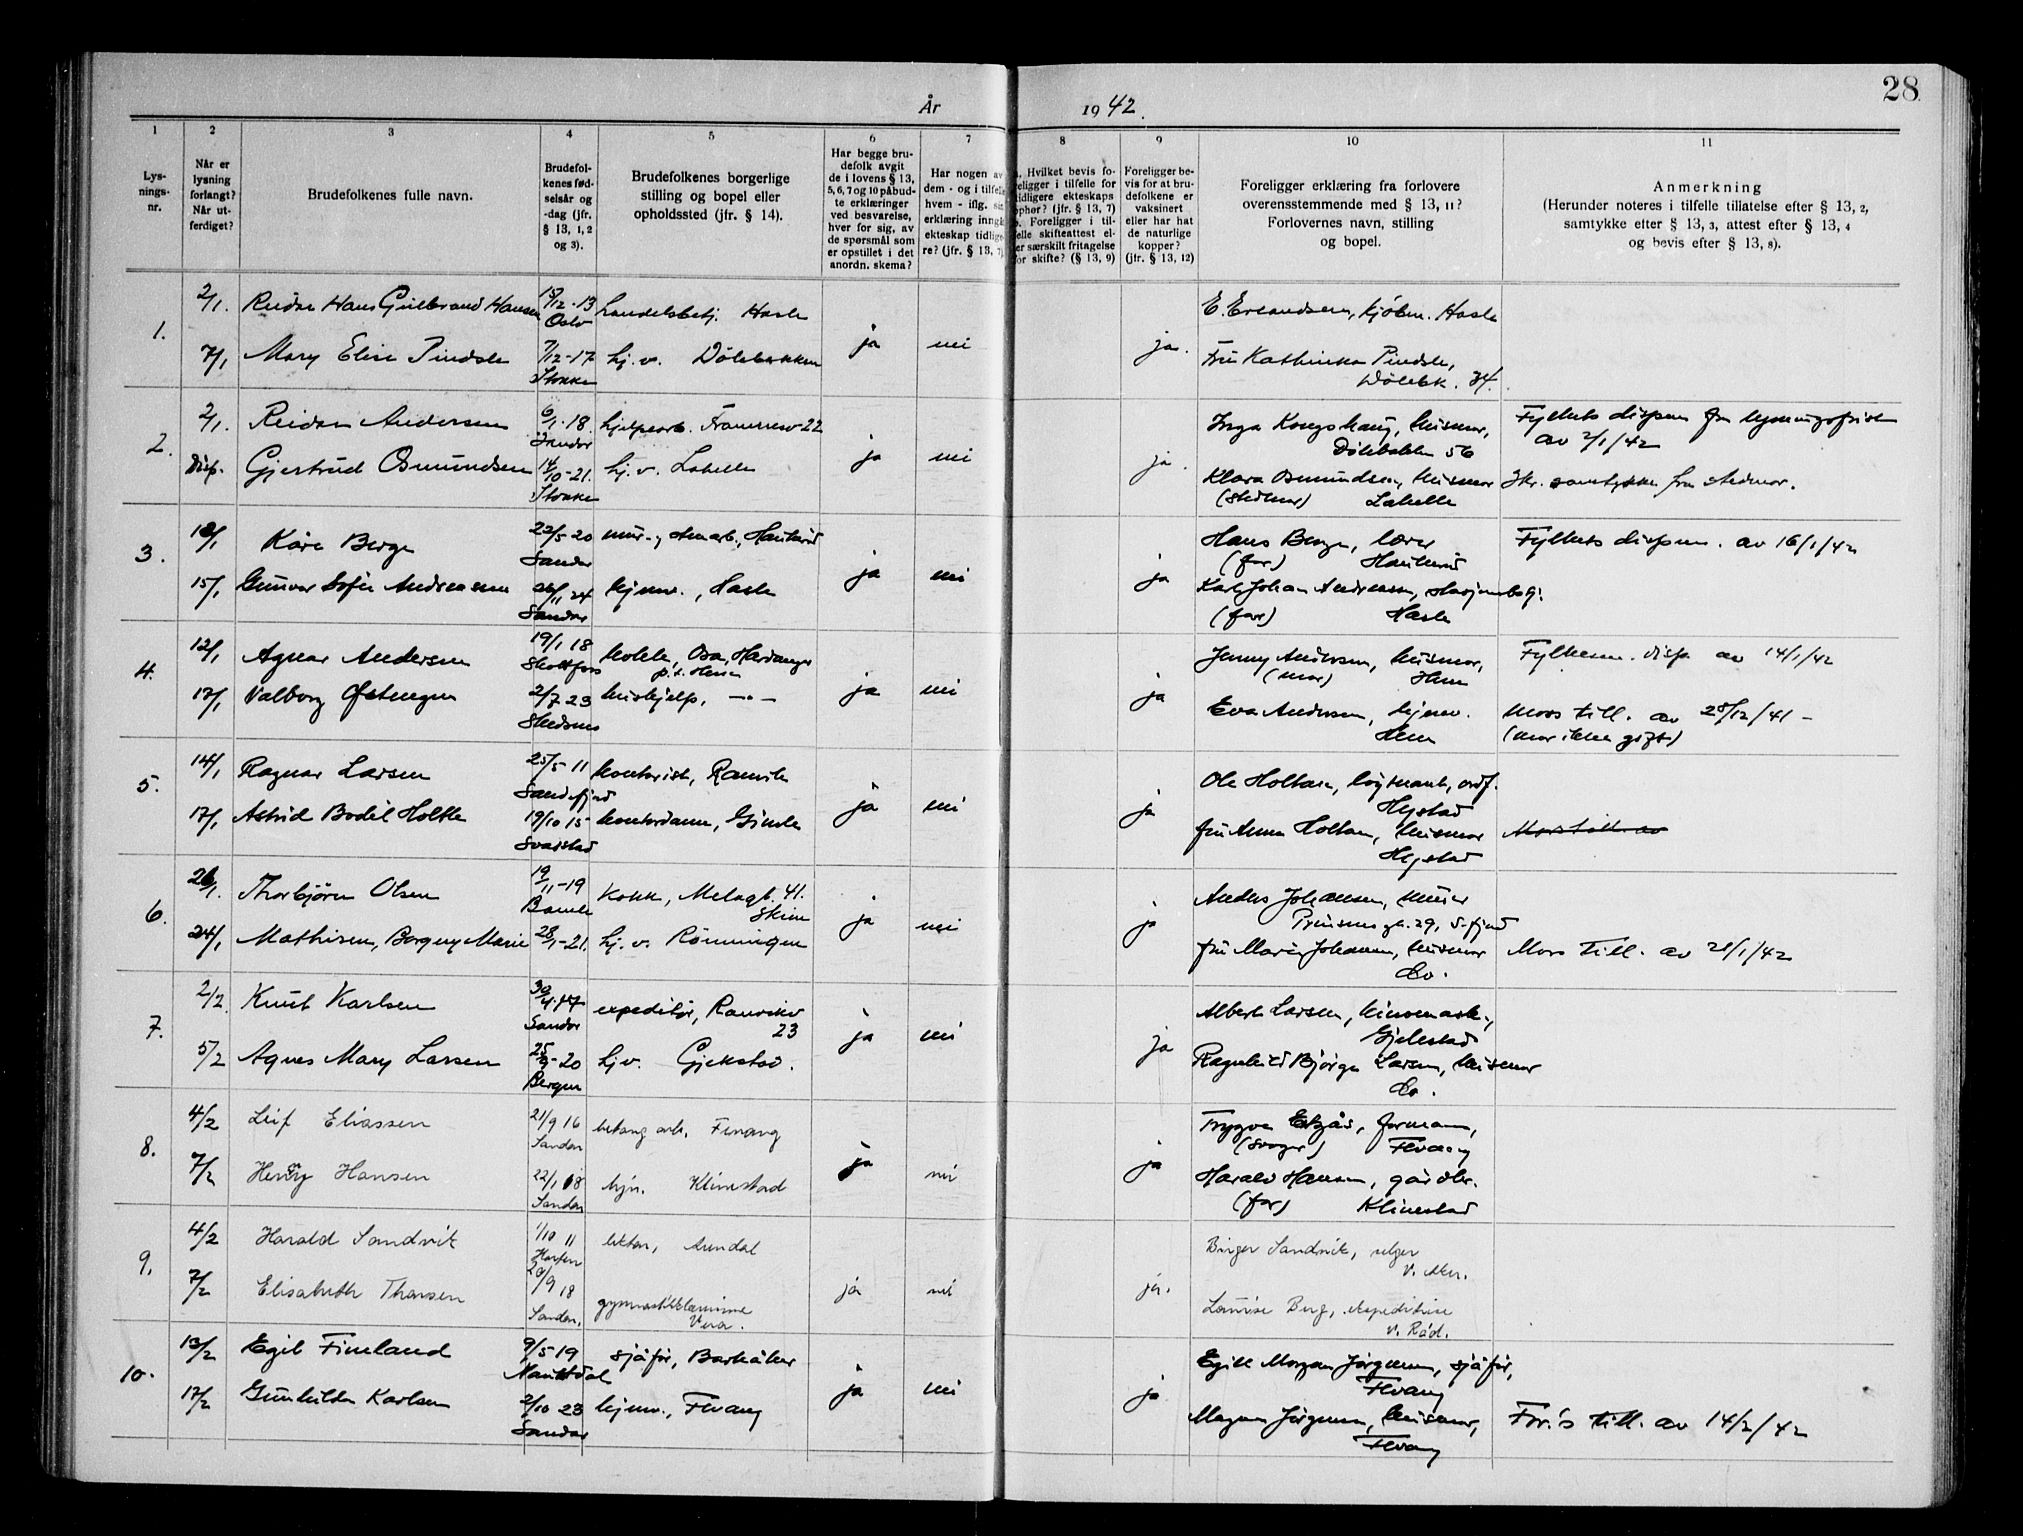 28
År 1942.
1 2 3 4 5 6 7 8 9 10 11
Lys-
nings-
nr.
Når er
lysning
forlangt?
Når ut-
ferdiget?
Brudefolkenes fulle navn.
Brudefol-
kenes fød-
selsår og
-dag (jfr.
§ 13, 1, 2
og 3).
Brudefolkenes borgerlige
stilling og bopel eller
opholdssted (jfr. § 14).
Har begge bru-
defolk avgit
de i lovens § 13,
5, 6, 7 og 10 påbud-
te erklæringer
ved besvarelse,
hver for sig, av
de spørsmål som
er opstillet i det
anordn. skema?
Har nogen av
dem - og i tilfelle
hvem - iflg. sin
erklæring inngå
ekteskap tidlige-
re? (jfr. § 13, 7).
. Hvilket bevis fo-
religger i tilfelle for
tidligere ekteskaps
ophør? (jfr. § 13, 7)
. Foreligger i til-
felle skifteattest el-
er særskilt fritagelse
for skifte? (§ 13, 9)
Foreligger be-
vis for at bru-
defolkene er
vaksinert
eller har hat
de naturlige
kopper?
(jfr. § 13, 12)
Foreligger erklæring fra forlovere
overensstemmende med § 13, 11?
Forlovernes navn, stilling
og bopel.
Anmerkning
(Herunder noteres i tilfelle tillatelse efter § 13, 2,
samtykke efter § 13, 3, attest efter § 13, 4
og bevis efter § 13, 8).
1. 2/1. Reidar Hans Gulbrand Hansen 15/12-13 Oslo handelsbetj. Hasle ja nei ja. E. Erlandsen, kjøbm. Hasle
7/1 Mary Elise Pindsle 7/12-17 Stokke hj. v. Dølebakken Fru Kathinka Pindsle,
Dølebk. 34.
2. 2/1. Reidar Andersen 6/1-18. Sandar hjelpearb. Framnesv 22 ja nei ja. Inga Kongshaug, husmor,
Dølebakken 56
Fylkets dispen fra lysningsfrist
av 2/1/42
Disp. Gjertrud Osmundsen 14/10-21. Stokke hj. v. Lahelle Klara Osmundsen, husmor
(stedmor) Lahelle
Skr. samtykke fra stedmor.
3. Kåre Berge 22/5 20 Sandar mur- Haukerød ja nei ja Hans Berge, lærer
(far) Haukerød
Fylkets dispen. av 16/1/42
15/1 Gunvor Sofie Andreassen 24 Sandar hjemv., Hasle Karl Johan Andreassen,
(far) Hasle
4. 12/1 Agnar Andersen 19/1 18 Skotfoss Osa, Hardanger
p.t. Hem ja nei ja Jenny Andersen, husmor,
(mor) Hem
Fylkesm. disp. av 14/1/42
17/1 Valborg Østengen 2/7 23 Skedsmo hushjelp, -"- Eva Andersen, hjemv.
Hem
Mors till. av 28/12/41 -
(mor ikke gift)
5. 14/1 Ragnar Larsen 25/5 11 Sandefjord kontorist, Ranvik ja nei ja Ole Holtan, løytnant, ordf.
Hystad
17/1 Astrid Bodil Holtte 19/10 15 Svarstad kontordame, Gimle fru Anna Holtan, husmor
Hystad
Mors till. av
6. Thorbjørn Olsen 19/11-19 Bamle Kokk, 41.
Skien ja nei ja Anders Johansen, murer
Prinsensgt. 29, S.fjord
24/1 Mathisen, Borgny Marie 28/1-21. hj. v. Rønningen fru Marie Johansen, husmor
do.
Mors till. av 21/1/42
7. 2/2. Knut Karlsen 30/4-17 Sandar expeditør, Ranvikv
23 ja nei ja Albert Larsen,
Gjekstad
5/2 Agnes Mary Larsen 25/9-20 Bergen hj v. Gjekstad. Ragnhild Bjørge Larsen, husmor
do.
8. 4/2 Leif Eliassen 21/9 16 Sandar betong arb. Fevang ja nei ja Trygve Ekjås, formann,
(svoger) Fevang
7/2 Henny Hansen 22/1 18 Sandar hjv. Klinestad Harald Hansen, gårdbr.
(far) Klinestad
9. 4/2 Harald Sandvik 1/10 11 lektor, Arendal ja nei ja. Birger Sandvik, selger
V. Aker.
7/2 Elisabeth Thorsen 20/9 18 Sandar. gymnastikklærerinne
Vera. Louise Berg, ekspeditrise
v. Råd.
10. 13/2 Egil Fimland 9/5 19 Naustdal sjåfør, Barkåker ja nei ja Egill Jørgensen, sjåfør,
Fevang
17/2 Gunhilda Karlsen 2/10 23 Sandar hjemv., Fevang Jørgensen, husmor,
Fevang
For.'s till. av 14/2/42